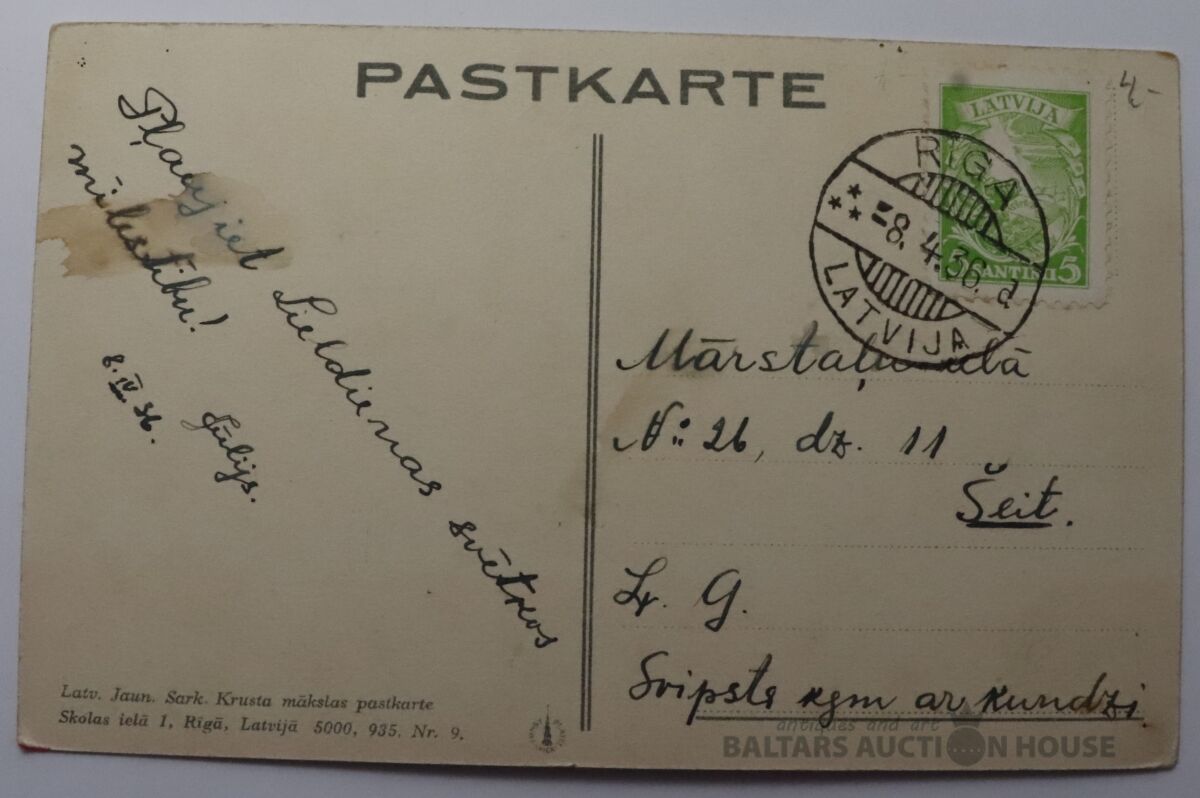 PASTKARTE
4,-
LATVIJA
5
RĪGA
-8. 4. 36. a
LATVIJA
Pļaujiet Lieldienas svētkos
mīlestību!
8. IV 36.
Jūlijs.
Mārstaļu ielā
№: 26, dz. 11
Šeit.
G.
kgm ar kundzi.
Latv. Jaun. Sark. Krusta mākslas pastkarte
Skolas ielā 1, Rīgā, Latvijā 5000, 935. Nr. 9.
antiques and art
BALTARS AUCTION HOUSE